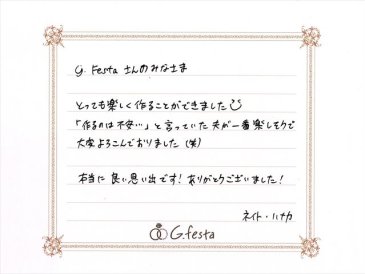 G. Festa さんのみなさま
とっても楽しく作ることができました
「作るのは不安…」と言っていた夫が一番楽しそうで
大変よろこんでおりました（笑）
本当に良い思い出です！ありがとうございました！
ネイト・ハナカ
G.festa